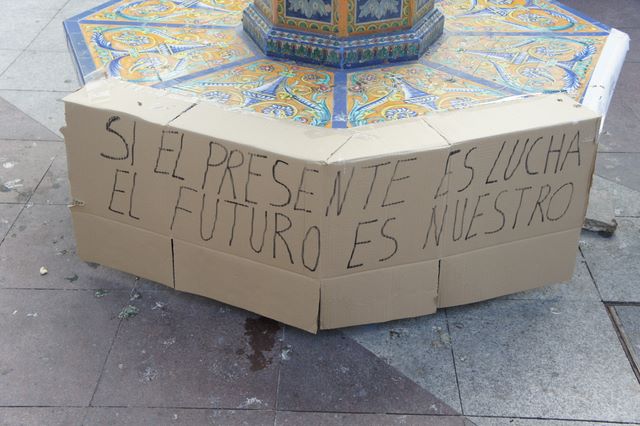 SI EL PRESENTE ES LUCHA
EL FUTURO ES NUESTRO